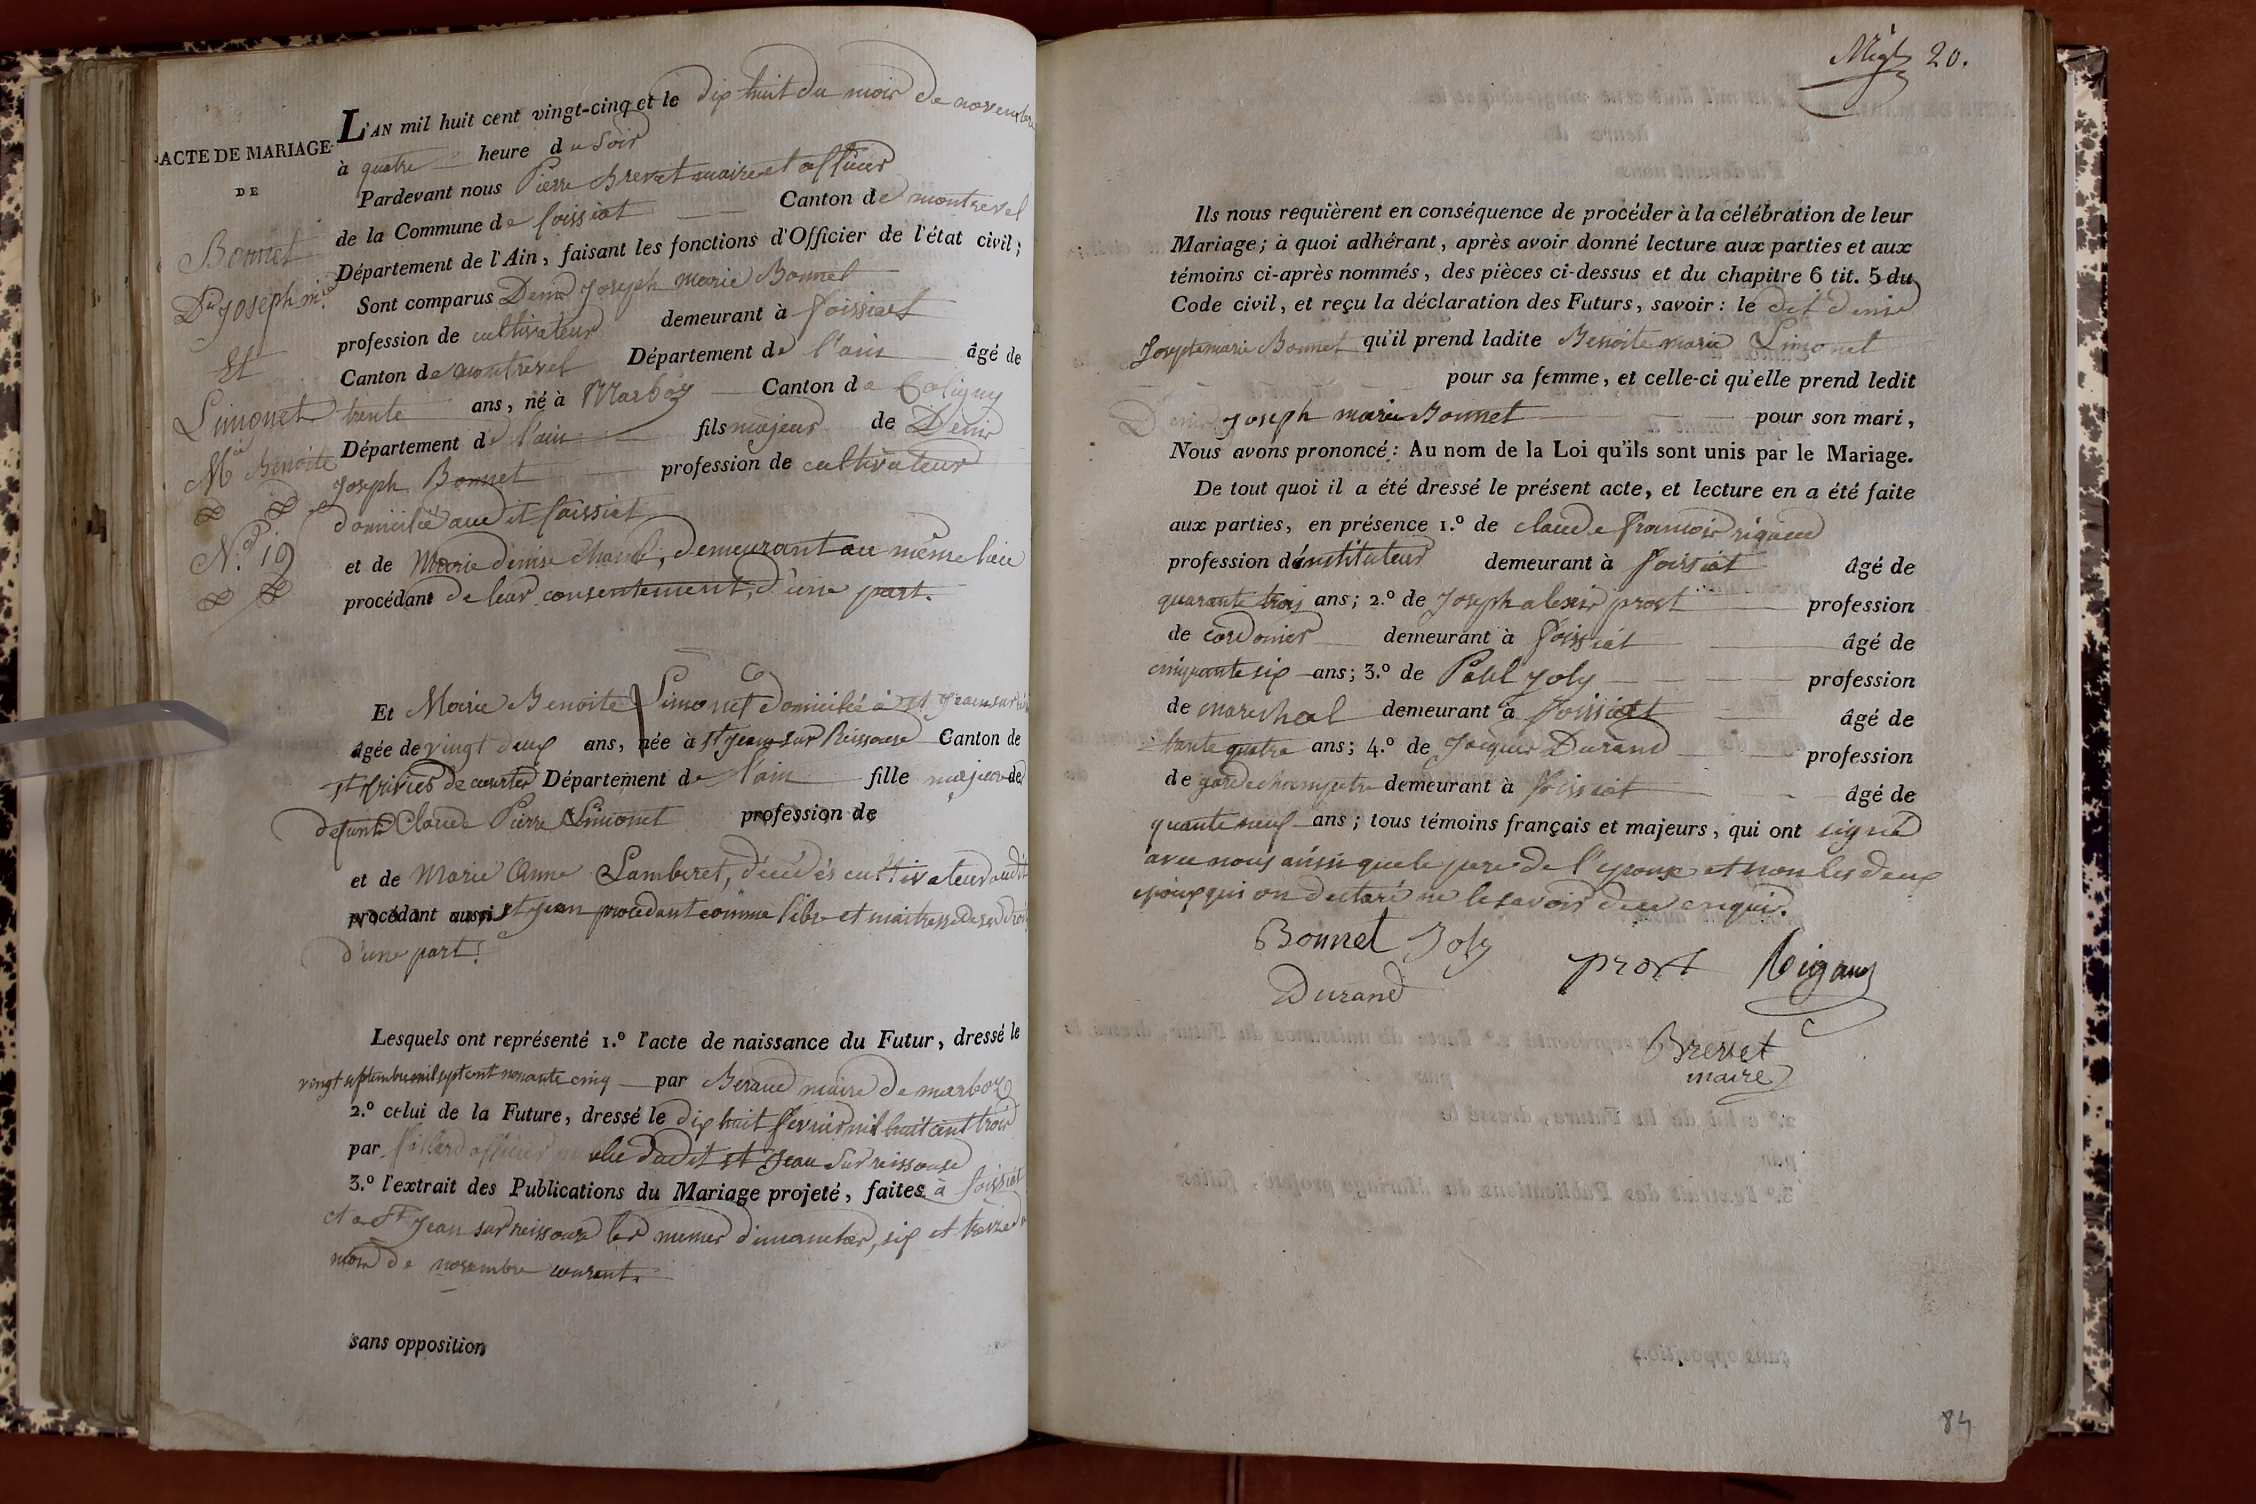 ACTE DE MARIAGE
DE
Bonnet
Dis Joseph mie
Et
Limonet
Mie Benoite
N.º 19
L'AN mil huit cent vingt-cinq et le dix huit du mois de novembre
à quatre heure du soir
Pardevant nous Pierre Brevet maire et officier
de la Commune de foissiat Canton de montrevel
Département de l'Ain, faisant les fonctions d'Officier de l'état civil;
Sont comparus Denis Joseph marie Bonnet
profession de cultivateur demeurant à foissiat
Canton de montrevel Département de l'ain âgé de
trente ans, né à Marboz Canton de Coligny
Département de l'ain fils majeur de Denis
Joseph Bonnet profession de cultivateur
domicilié audit foissiat
et de Marie denise, demeurant au même lieu
procédant de leur consentement, d'une part.
Et Marie Benoite Limonet domiciliée à st jean sur
âgée de vingt deux ans, née à st jean sur Reissouse Canton de
st trivier de courtes Département de l'ain fille majeure de
defunt Claude Pierre Limonet profession de
et de Marie Anne Lamberet, décédés cultivateurs audit
procédant aussi st jean procedant comme libre et maitresse de ses droits
d'une part.
Lesquels ont représenté 1.º l'acte de naissance du Futur, dressé le
vingt septembre mil sept cent nonante cinq par Beraud maire de marboz
2.º celui de la Future, dressé le dix huit fevrier mil huit cent trois
par officier dudit st Jean sur reissouse
3.º l'extrait des Publications du Mariage projeté, faites à foissiat
et a St Jean sur reissouse les memes dimanches, six et treize du
mois de novembre courant.
sans opposition
20.
Ils nous requièrent en conséquence de procéder à la célébration de leur
Mariage; à quoi adhérant, après avoir donné lecture aux parties et aux
témoins ci-après nommés, des pièces ci-dessus et du chapitre 6 tit. 5 du
Code civil, et reçu la déclaration des Futurs, savoir: le dit denis
Joseph marie Bonnet qu'il prend ladite Benoite marie Limonet
pour sa femme, et celle-ci qu'elle prend ledit
Denis Joseph marie Bonnet pour son mari,
Nous avons prononcé: Au nom de la Loi qu'ils sont unis par le Mariage.
De tout quoi il a été dressé le présent acte, et lecture en a été faite
aux parties, en présence 1.º de claude francois rigaud
profession d'instituteur demeurant à foissiat âgé de
quarante trois ans; 2.º de Joseph alexis prost profession
de cordonier demeurant à foissiat âgé de
cinquante six ans; 3.º de Joly profession
de marechal demeurant à foissiat âgé de
trente quatre ans; 4.º de Jacques Durand profession
de garde champetre demeurant à foissiat âgé de
quante neuf ans; tous témoins français et majeurs, qui ont signé
avec nous ainsi que le pere de l'epoux et non les deux
epoux qui on declaré ne le savoir de ce enquis.
Bonnet Joly prost Rigaud
Durand
Brevet
maire
84